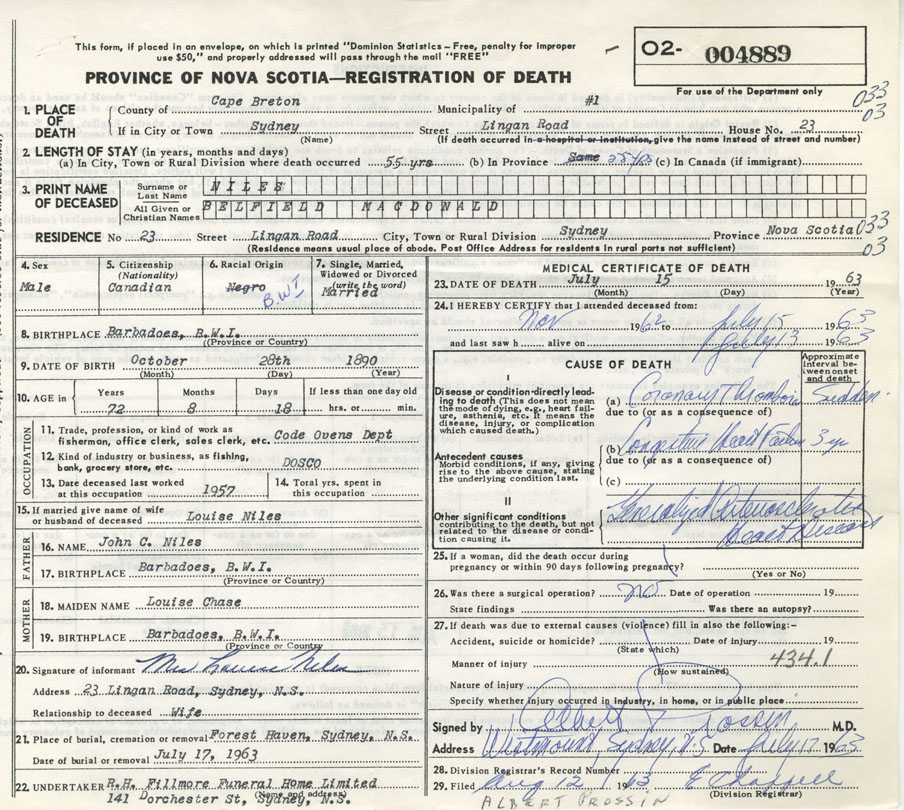 This form, if placed in an envelope, on which is printed "Dominion Statistics – Free, penalty for improper
use $50," and properly addressed will pass through the mail "FREE"
02- 004889
PROVINCE OF NOVA SCOTIA—REGISTRATION OF DEATH
For use of the Department only
033
03
1. PLACE OF DEATH
County of Cape Breton Municipality of #1
If in City or Town Sydney Street Lingan Road House No. 23
(Name) (If death occurred in a hospital or institution, give the name instead of street and number)
2. LENGTH OF STAY (in years, months and days)
(a) In City, Town or Rural Division where death occurred 55 yrs (b) In Province Same 55 yrs (c) In Canada (if immigrant)
3. PRINT NAME OF DECEASED
Surname or Last Name NILES
All Given or Christian Names BELFIELD MACDONALD
RESIDENCE No 23 Street Lingan Road City, Town or Rural Division Sydney Province Nova Scotia 033
(Residence means usual place of abode. Post Office Address for residents in rural parts not sufficient) 03
4. Sex
Male
5. Citizenship
(Nationality)
Canadian
6. Racial Origin
Negro
B.W.I
7. Single, Married,
Widowed or Divorced
(write the word)
Married
8. BIRTHPLACE Barbadoes, B.W.I.
(Province or Country)
9. DATE OF BIRTH October 28th 1890
(Month) (Day) (Year)
10. AGE in
Years Months Days If less than one day old
72 8 18 hrs. or min.
OCCUPATION
11. Trade, profession, or kind of work as
fisherman, office clerk, sales clerk, etc. Code Ovens Dept
12. Kind of industry or business, as fishing,
bank, grocery store, etc. DOSCO
13. Date deceased last worked
at this occupation 1957
14. Total yrs. spent in
this occupation
15. If married give name of wife
or husband of deceased Louise Niles
FATHER
16. NAME John C. Niles
17. BIRTHPLACE Barbadoes, B.W.I.
(Province or Country)
MOTHER
18. MAIDEN NAME Louise Chase
19. BIRTHPLACE Barbadoes, B.W.I.
(Province or Country)
20. Signature of informant Mrs Louise Niles
Address 23 Lingan Road, Sydney, N.S.
Relationship to deceased Wife
21. Place of burial, cremation or removal Forest Haven, Sydney, N.S.
Date of burial or removal July 17, 1963
22. UNDERTAKER R.H. Fillmore Funeral Home Limited
(Name and address)
141 Dorchester St, Sydney, N.S.
MEDICAL CERTIFICATE OF DEATH
23. DATE OF DEATH July 15 1963
(Month) (Day) (Year)
24. I HEREBY CERTIFY that I attended deceased from:
Nov 1962 to July 15 1963
and last saw h alive on July 13 1963
CAUSE OF DEATH
Approximate
interval be-
tween onset
and death
I
Disease or condition directly lead-
ing to death (This does not mean
the mode of dying, e.g., heart failure,
asthenia, etc. It means the
disease, injury, or complication
which caused death.)
(a) Coronary Thrombosis Sudden
due to (or as a consequence of)
(b) Congestive Heart Failure 3 yr
due to (or as a consequence of)
(c)
Antecedent causes
Morbid conditions, if any, giving
rise to the above cause, stating
the underlying condition last.
II
Other significant conditions
contributing to the death, but not
related to the disease or condi-
tion causing it.
Arteriosclerotic
Heart Disease
25. If a woman, did the death occur during
pregnancy or within 90 days following pregnancy?
(Yes or No)
26. Was there a surgical operation? no Date of operation 19
State findings Was there an autopsy?
27. If death was due to external causes (violence) fill in also the following:-
Accident, suicide or homicide? Date of injury 19
(State which)
434.1
Manner of injury
(How sustained)
Nature of injury
Specify whether injury occurred in industry, in home, or in public place
Signed by Albert Prossin M.D.
Address Westmount, Sydney, N.S Date July 17 1963
28. Division Registrar's Record Number
29. Filed Aug 12 1963
(Division Registrar)
ALBERT PROSSIN